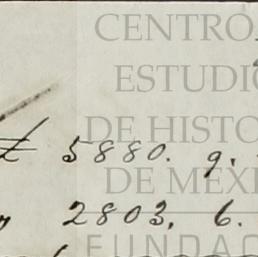 CENTRO
ESTUDIO
DE HISTO
£ 5880. 9.
DE MÉXI
2803. 6.
FUNDAC